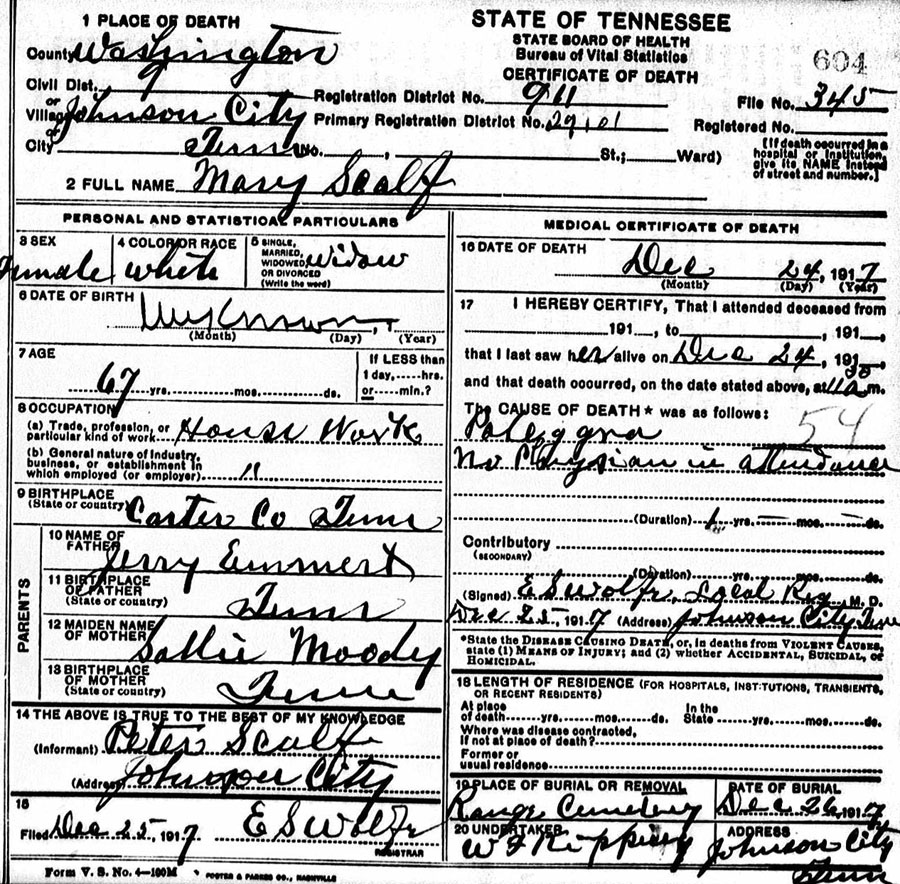 STATE OF TENNESSEE
STATE BOARD OF HEALTH
Bureau of Vital Statistics
CERTIFICATE OF DEATH
604
1 PLACE OF DEATH
County Washington
Civil Dist.
or
Village Johnson City
or
City Tenn No. , St.; Ward)
Registration District No. 911
Primary Registration District No. 29,01
File No. 345
Registered No.
[If death occurred in a
hospital or institution,
give its NAME instead
of street and number.]
2 FULL NAME Mary Scalf
PERSONAL AND STATISTICAL PARTICULARS
3 SEX
Female
4 COLOR OR RACE
white
5 SINGLE,
MARRIED,
WIDOWED,
OR DIVORCED
(Write the word)
widow
6 DATE OF BIRTH
Unknown
(Month) (Day) (Year)
7 AGE
67 yrs. mos. ds.
If LESS than
1 day, hrs.
or min.?
8 OCCUPATION
(a) Trade, profession, or
particular kind of work House Work
(b) General nature of industry,
business, or establishment in
which employed (or employer) "
9 BIRTHPLACE
(State or country) Carter Co Tenn
PARENTS
10 NAME OF
FATHER Jerry Emmert
11 BIRTHPLACE
OF FATHER
(State or country) Tenn
12 MAIDEN NAME
OF MOTHER Sallie Moody
13 BIRTHPLACE
OF MOTHER
(State or country) Tenn
14 THE ABOVE IS TRUE TO THE BEST OF MY KNOWLEDGE
(Informant) Peter Scalf
(Address) Johnson City
15
Filed Dec 25, 1917 E S Wolfe
REGISTRAR
MEDICAL CERTIFICATE OF DEATH
16 DATE OF DEATH
Dec 24, 1917
(Month) (Day) (Year)
17 I HEREBY CERTIFY, That I attended deceased from
191 , to , 191 ,
that I last saw her alive on Dec 24, 191
and that death occurred, on the date stated above, at m.
The CAUSE OF DEATH* was as follows:
54
No Physian in attendance
(Duration) 1 yrs. — mos. — ds.
Contributory
(SECONDARY)
(Duration) yrs. mos. ds.
(Signed) E S Wolfe, Local Reg M. D.
Dec 25, 1917 (Address) Johnson City Tenn
*State the DISEASE CAUSING DEATH, or, in deaths from VIOLENT CAUSES,
state (1) MEANS OF INJURY; and (2) whether ACCIDENTAL, SUICIDAL, or
HOMICIDAL.
18 LENGTH OF RESIDENCE (FOR HOSPITALS, INSTITUTIONS, TRANSIENTS,
OR RECENT RESIDENTS)
At place
of death yrs. mos. ds.
In the
State yrs. mos. ds.
Where was disease contracted,
If not at place of death?
Former or
usual residence
19 PLACE OF BURIAL OR REMOVAL
Range Cemetery
DATE OF BURIAL
Dec 26, 1917
20 UNDERTAKER
ADDRESS
Johnson City
Tenn
Form V. S. No. 4—100M
FOSTER & PARKES CO., NASHVILLE